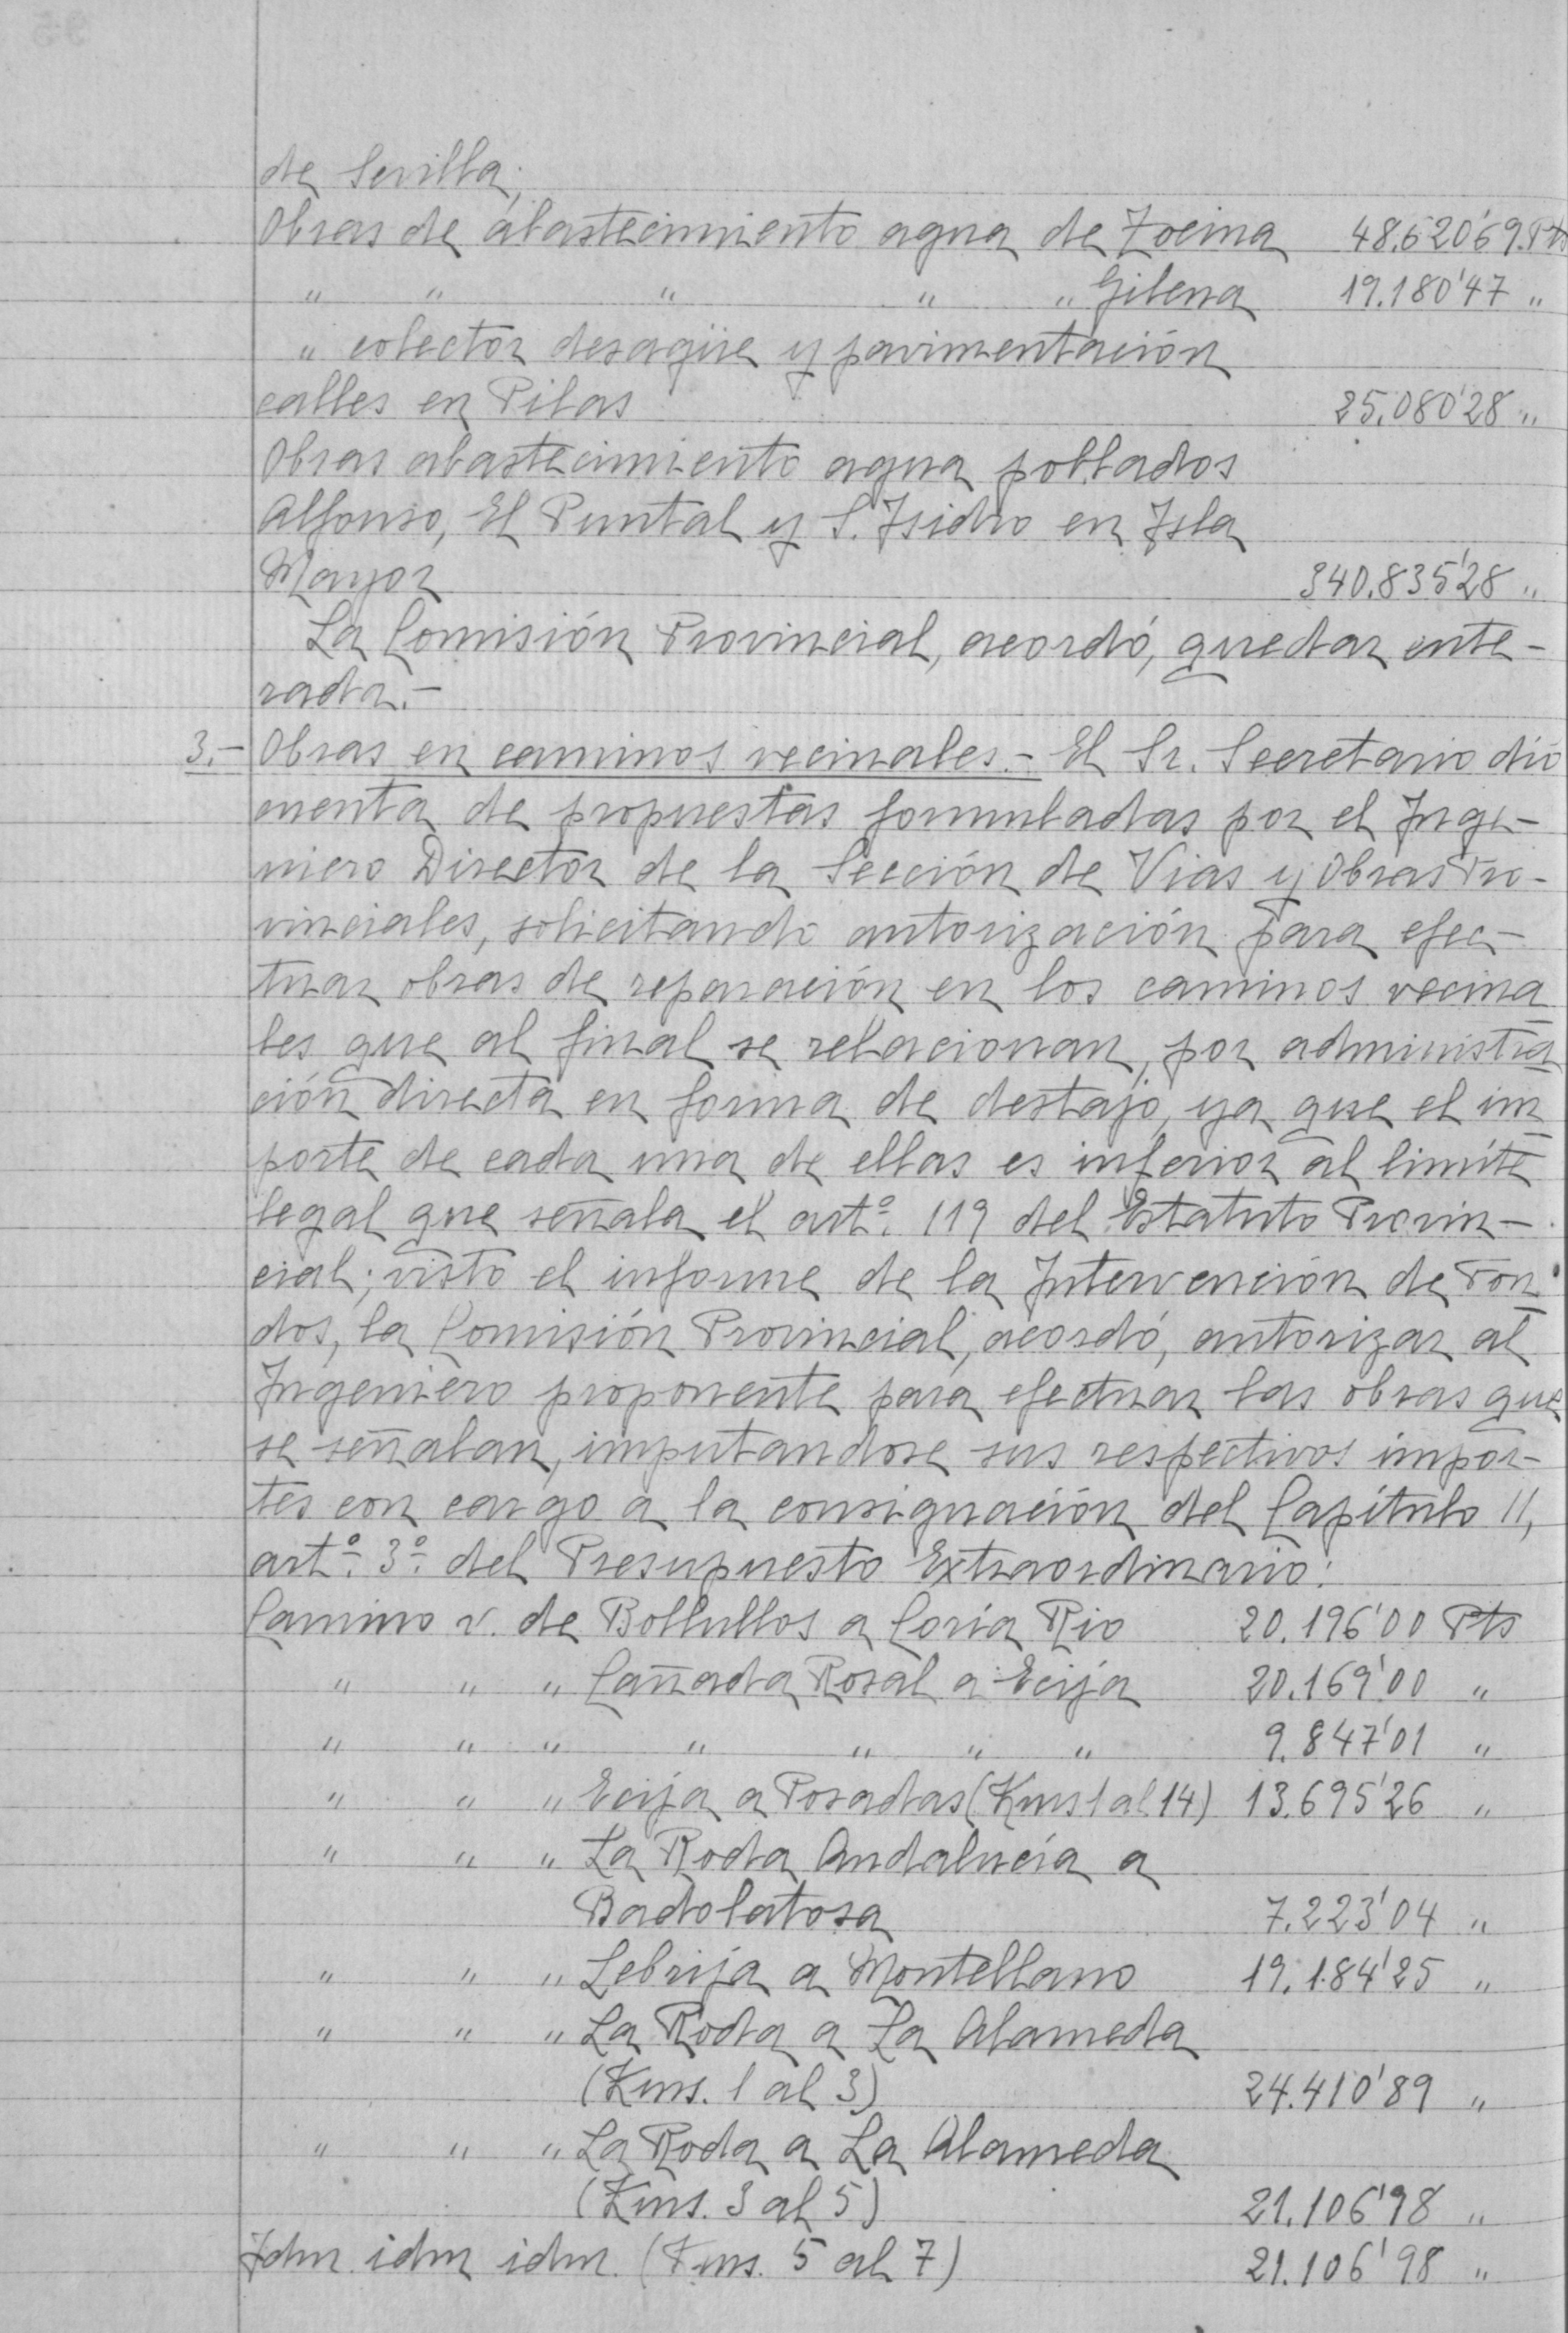 de Sevilla;
Obras de abastecimiento agua de Tocina 48.620'69 Pts
" " " " " Gilena 19.180'47 "
" colector desagüe y pavimentación
calles en Pilas 25.080'28 "
Obras abastecimiento agua poblados
Alfonso, El Puntal y S. Isidro en Isla
Mayor 340.835'28 "
La Comisión Provincial, acordó, quedar ente-
rada.-
3.- Obras en caminos vecinales.- El Sr. Secretario dió
cuenta de propuestas formuladas por el Inge-
niero Director de la Sección de Vias y Obras Pro-
vinciales, solicitando autorización para efec-
tuar obras de reparación en los caminos vecina
les que al final se relacionan, por administra
ción directa en forma de destajo, ya que el im
porte de cada una de ellas es inferior al limite
legal que señala el artº. 119 del Estatuto Provin-
cial; visto el informe de la Intervención de Fon
dos, la Comisión Provincial, acordó, autorizar al
Ingeniero proponente para efectuar las obras que
se señalan, imputandose sus respectivos impor-
tes con cargo a la consignación del Capítulo 11,
artº. 3º. del Presupuesto Extraordinario:
Camino v. de Bollullos a Coria Rio 20.196'00 Pts
" " " Cañada Rosal a Ecija 20.169'00 "
" " " " " " " 9.847'01 "
" " " Ecija a Posadas (Kms 1 al 14) 13.695'26 "
" " " La Roda Andalucía a
Badolatosa 7.223'04 "
" " " Lebrija a Montellano 19.184'25 "
" " " La Roda a La Alameda
(Kms. 1 al 3) 24.410'89 "
" " " La Roda a La Alameda
(Kms. 3 al 5) 21.106'98 "
Idm. idm idm. (Kms. 5 al 7) 21.106'98 "